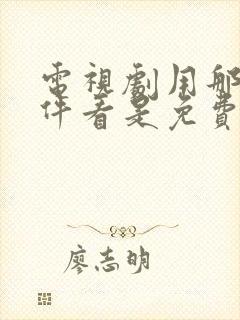 電視劇用那
件看是免費
廖志明